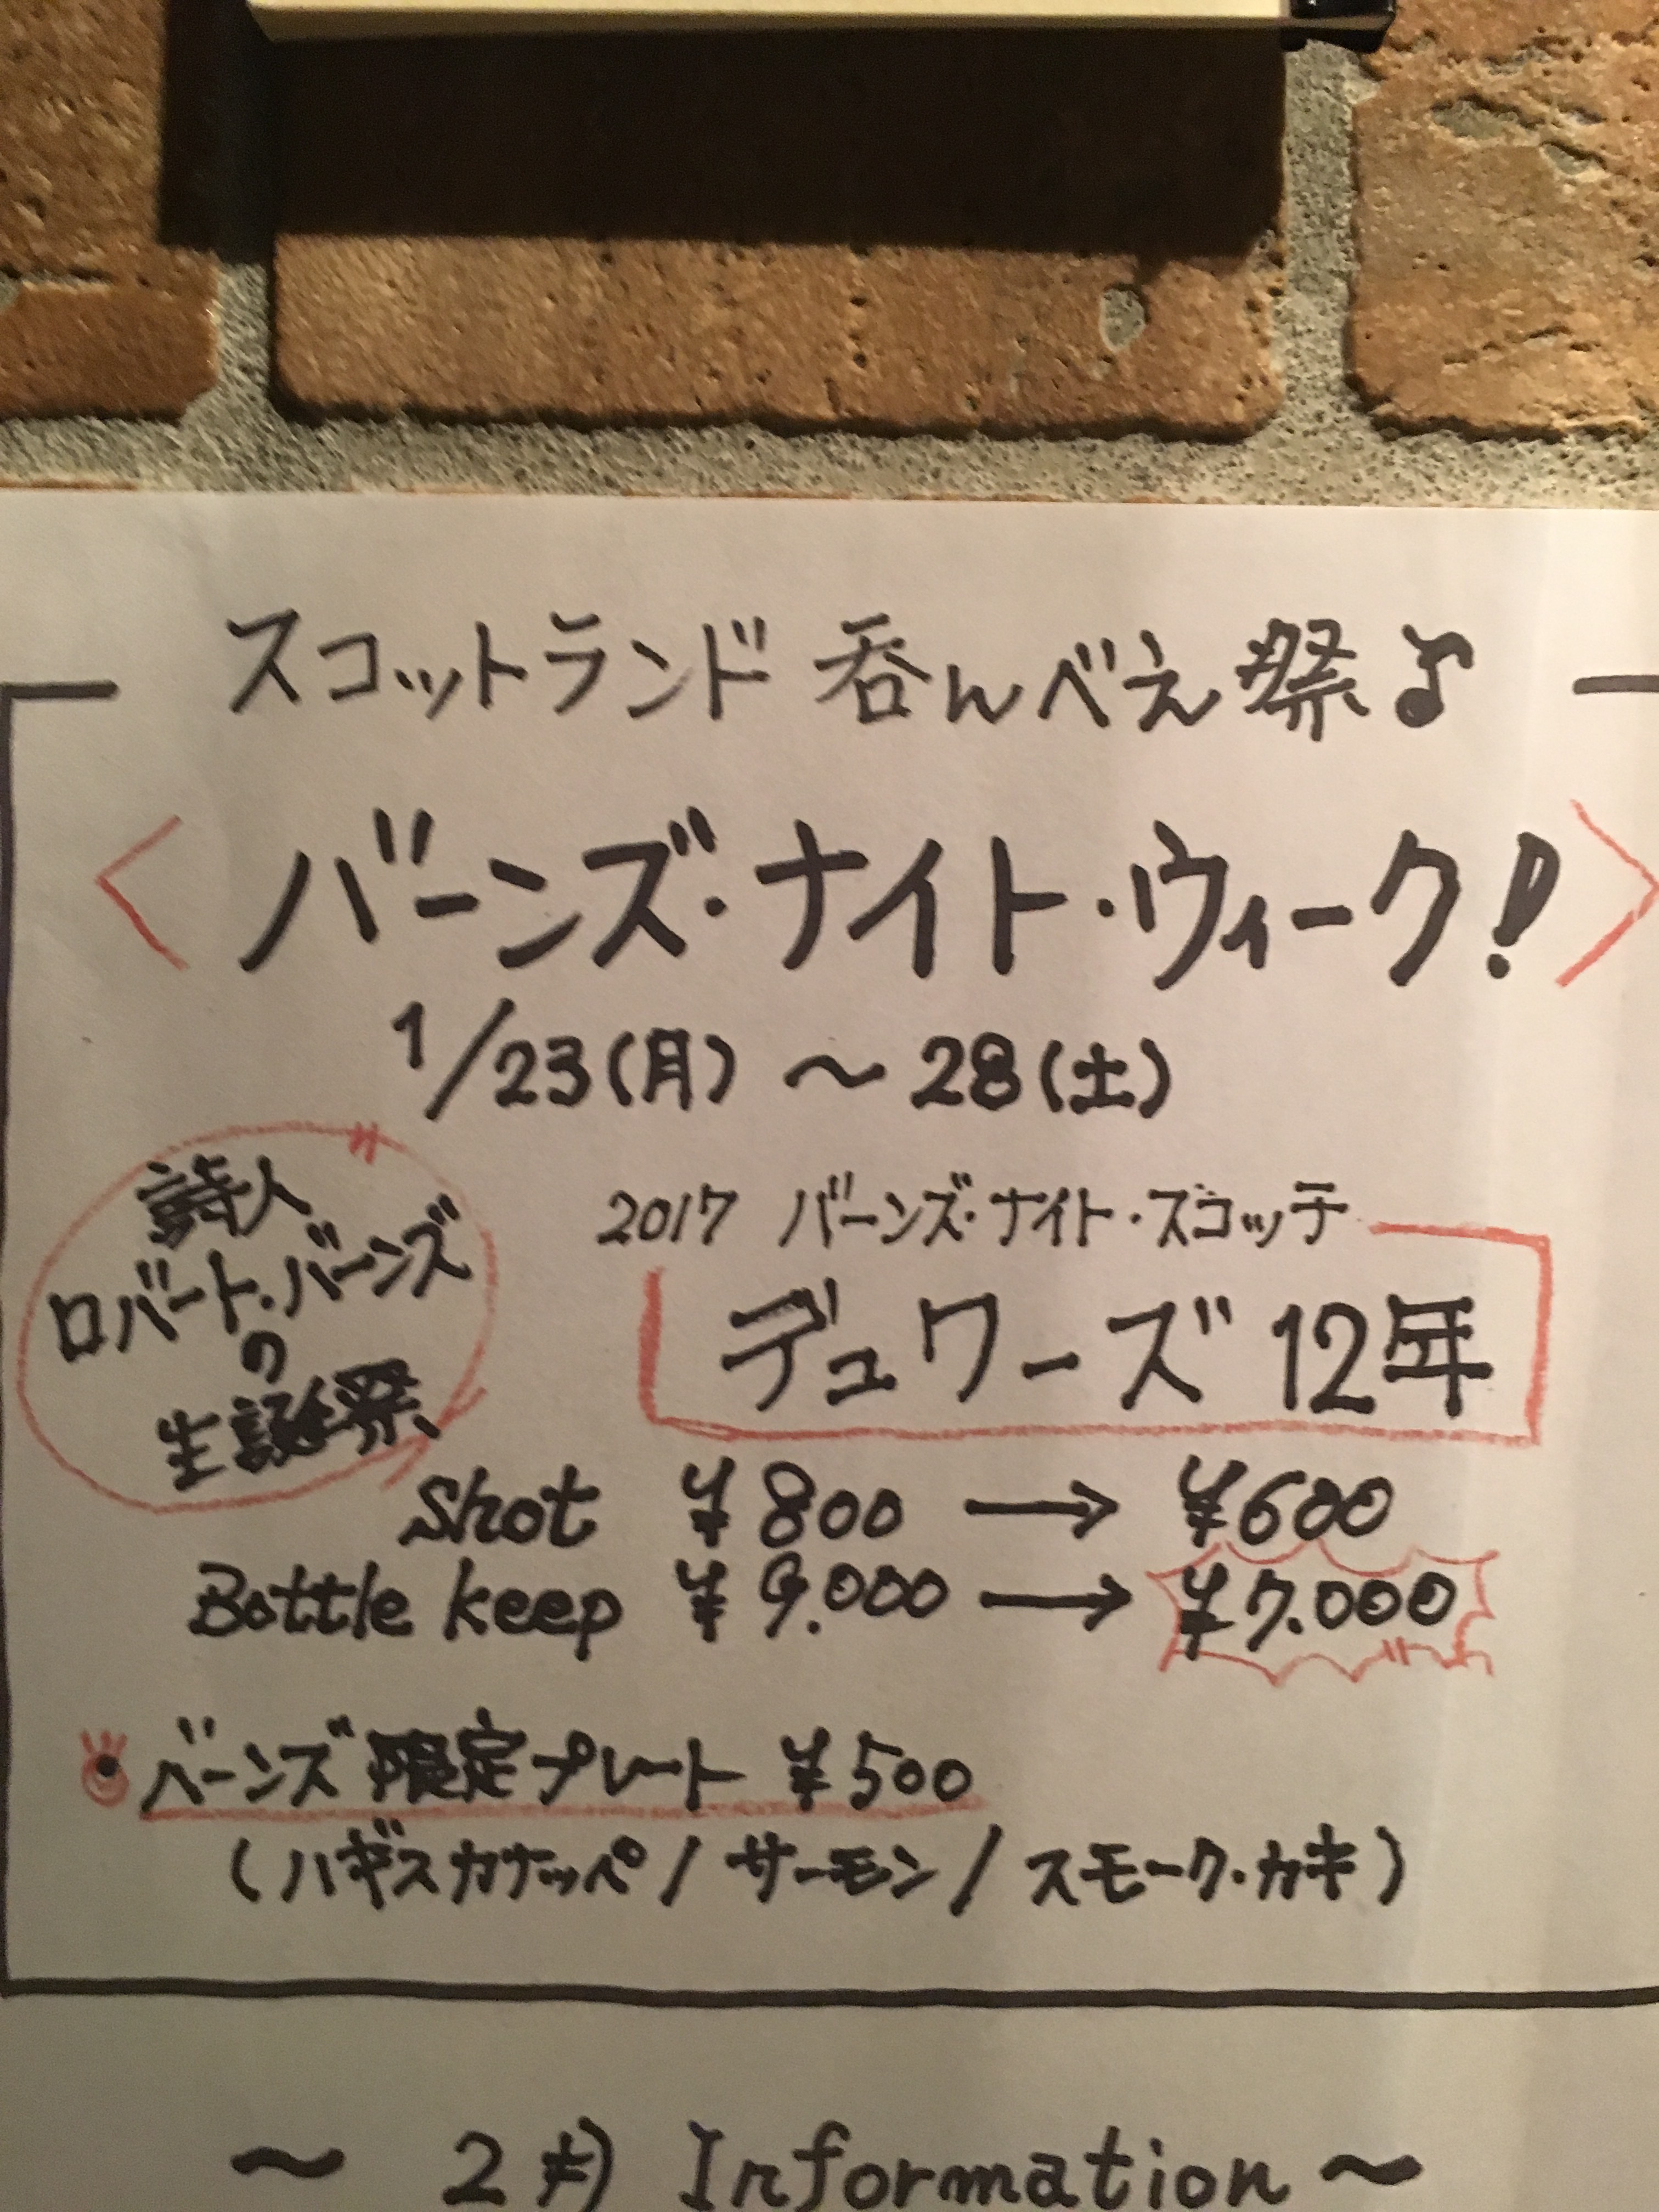 スコットランド 呑んべえ祭♪
〈バーンズ・ナイト・ウィーク!〉
1/23(月) 〜 28(土)
詩人
ロバート・バーンズ
の
生誕祭
2017 バーンズ・ナイト・スコッチ
デュワーズ 12年
Shot ¥800 → ¥600
Bottle keep ¥9.000 → ¥7.000
バーンズ限定プレート ¥500
(ハギスカナッペ/サーモン/スモーク・カキ)
〜 2月 Information 〜